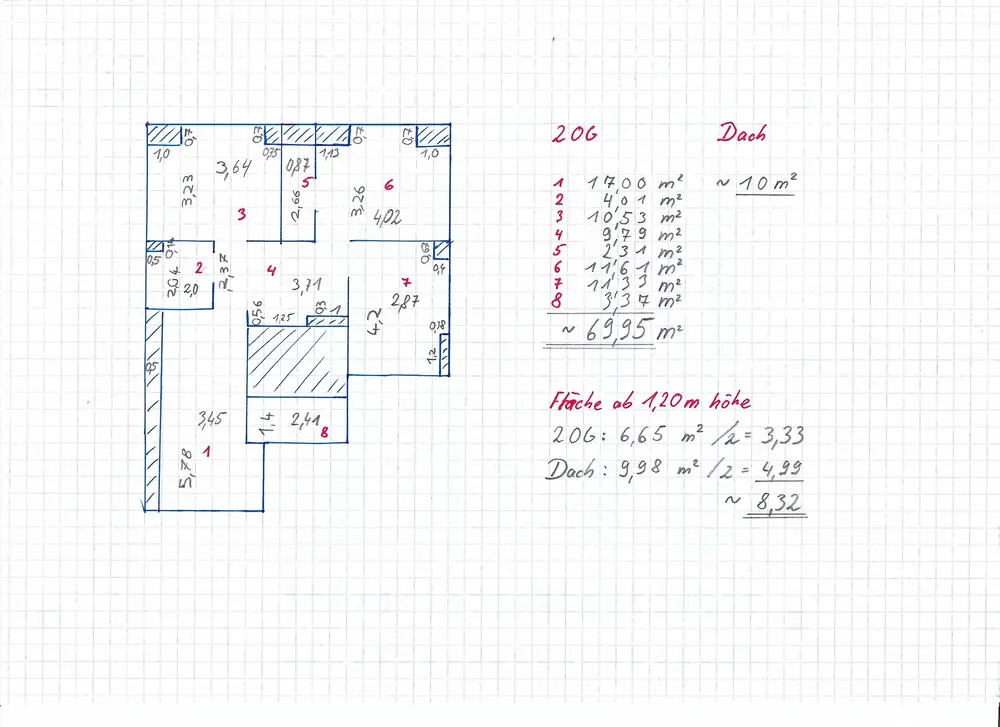 2OG Dach
1 17,00 m² ~ 10 m²
2 4,01 m²
3 10,53 m²
4 9,79 m²
5 2,31 m²
6 11,61 m²
7 11,33 m²
8 3,37 m²
~ 69,95 m²
Fläche ab 1,20m höhe
2OG: 6,65 m² /2 = 3,33
Dach: 9,98 m² /2 = 4,99
~ 8,32
0,7 0,7 0,7 0,7
1,0 0,75 0,87 1,13 1,0
3,64
5
3,23 2,66 3,26 6
3 4,02
0,14 0,67
0,5 2 2,37 4 0,4
2,04 2,0 3,71 7
2,87
0,56 1,25 0,3 1 4,2 0,18
1,2
0,5
3,45 1,4 2,41
8
1
5,78